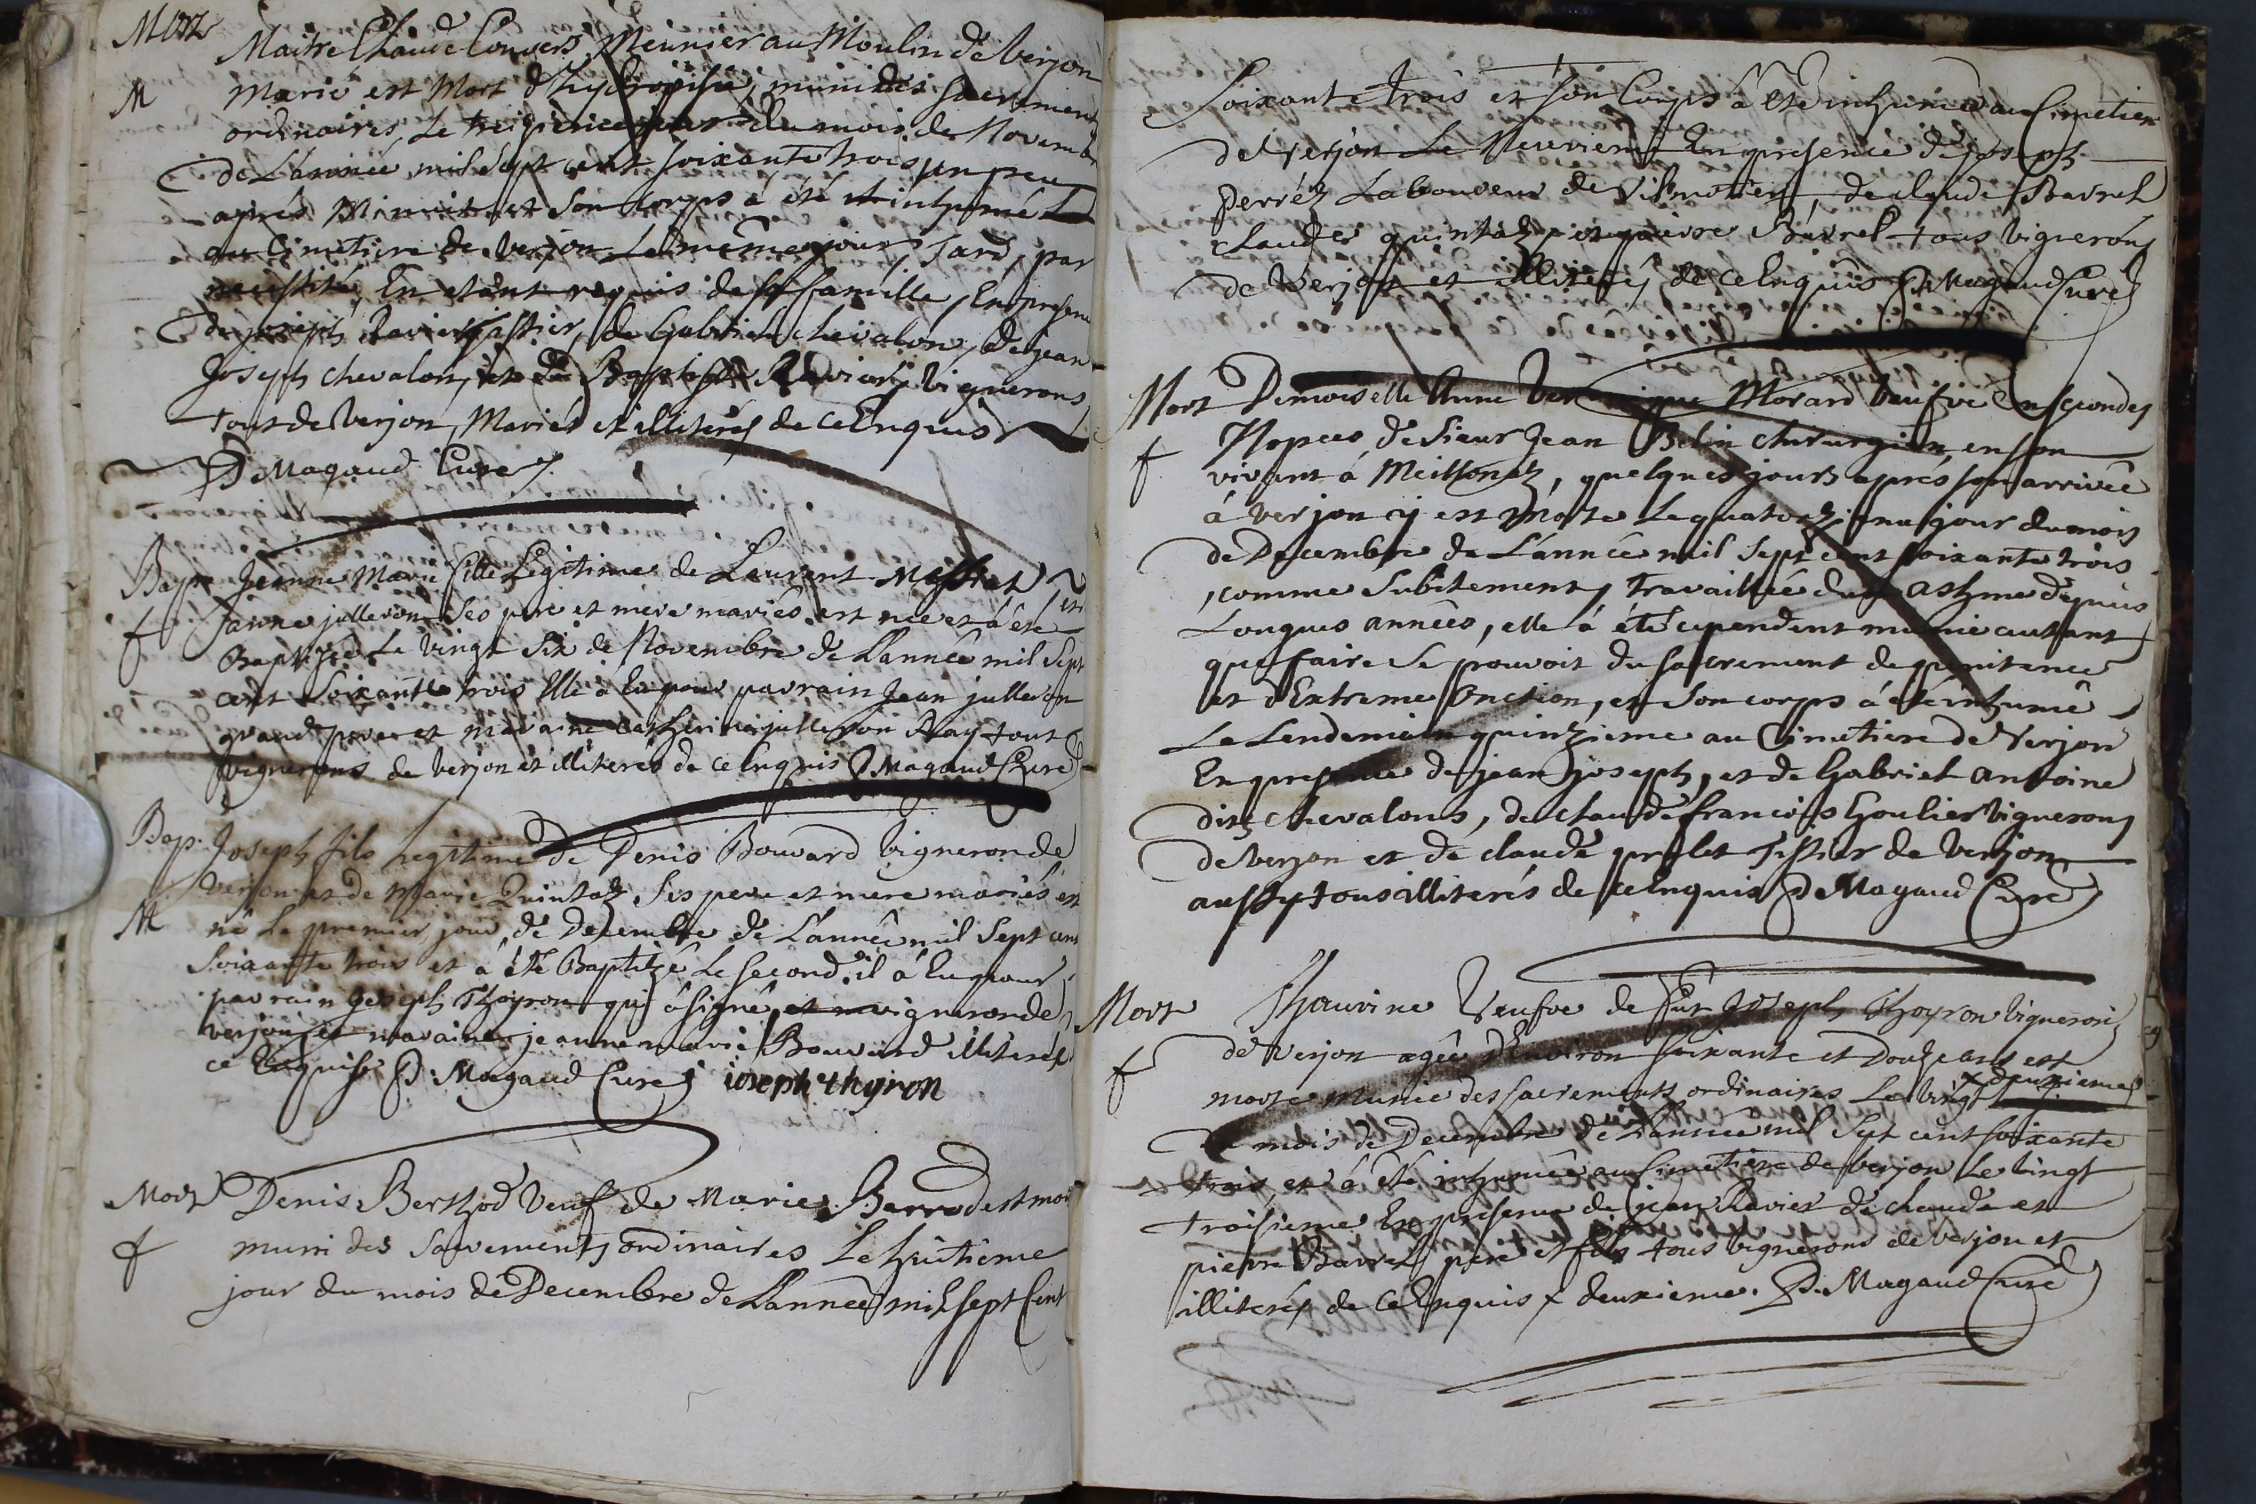 Mort Maitre Claude Convers Meunier au Moulin de Verjon
M marié est Mort d'hydropisie, muni des sacrements
ordinaires, Le treizieme jour du mois de Novembre
de L'année mil sept cent soixante trois un peu
aprés Minuit et son corps à été inhumé
au Cimetiere de verjon Le même jour, Tard, par
necessité, En etant requis de sa famille, En presence
de joseph Ravier, de Gabriel chevalon, de jean
Joseph chevalon, et de Baptiste Ravier, vignerons
tous de Verjon, Mariés et illiterés de ce Enquis
D Magaud Curé
Bapt Jeanne Marie fille Legitime de Laurent Messiat et
f Janne julleron ses pere et mere mariés est née et à été
Baptizée Le vingt six de Novembre de L'année mil sept
cent soixante trois Elle à Eu pour parrain Jean julleron
grand pere et maraine Catherine julleron tous
vignerons de verjon et illiterés de ce Enquis D Magaud Curé
Bap. Joseph fils Legitime de Denis Bouvard vigneron de
verjon et de Marie Quintaz ses pere et mere mariés est
M né Le premier jour de Decembre de L'année mil sept cent
soixante trois et à été Baptizé Le second. il à Eu pour
parrain joseph Thoyron qui à signé, vigneron de
verjon et maraine jeanne marie Bouvard illiterés
ce Enquise D. Magaud Curé joseph thyron
Mort Denis Berthod Veuf de Marie Barrod est mort
f muni des sacrements ordinaires Le huitieme
jour du mois de Decembre de L'année mil sept Cent
soixante trois et son Corps à été inhumé au Cimetiere
de Verjon Le Neuvieme En presence de joseph
perréz Laboureur de Vilmotier, de claude Barrel
claude quintaz et pierre Barrel tous vignerons
de Verjon et illiterés de ce Enquis D. Magaud Curé
Mort Demoiselle Anne Veronique Morard veufve En secondes
f Nopces de Sieur Jean Belin chirurgien en son
vivant à Meillonaz, quelques jours aprés son arrivée
à verjon y est Morte Le quatorzieme jour du mois
de Decembre de L'année mil sept cent soixante trois
comme subitement, travaillée d'un asthme depuis
Longues années, elle à été cependent munie autant
que faire se pouvoit du sacrement de penitence
et d'Extreme Onction, et son corps à été inhumé
Le Lendemain quinzieme au Cimetiere de Verjon
En presence de jean joseph, et de Gabriel antoine
dits chevalons, de claude francois Goulier vignerons
de verjon et de claude Tissier de Verjon
aussy tous illiterés de ce Enquis D Magaud Curé
Mort Thaurine Veufve de feu Joseph Thoyron vigneron
f de verjon agée d'Environ soixante et Douze ans est
morte munie des sacrements ordinaires Le vingt x deuxieme
du mois de Decembre de L'année mil sept cent soixante
trois, et à été inhumée au Cimetiere de verjon Le vingt
troisieme En presence de jean Ravier de claude et
pierre Barrel pere et fils tous vignerons de verjon et
illiterés de ce Enquis x deuxieme. D. Magaud Curé